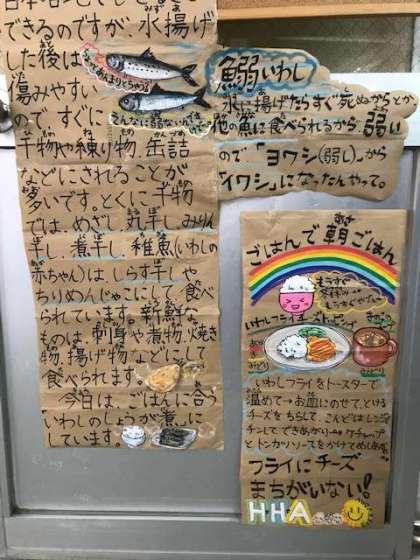 できるのですが、水揚げ
した後は
傷みやすい
ので、すぐに
干物や練り物、缶詰
などにされることが
多いです。とくに干物
では、めざし、丸干し、みりん
干し、煮干し、稚魚(いわしの
赤ちゃん)は、しらす干しや
ちりめんじゃこにして食べ
られています。新鮮な
ものは、刺身や煮物、焼き
物、揚げ物などにして
食べられます。
今日は、ごはんに合う
いわしのしょうが煮に
しています。
鰯いわし
水に揚げたらすぐ死ぬからとか
他の魚に食べられるから、弱い
ので「ヨワシ(弱し)」から
「イワシ」になったんやって。
ごはんで朝ごはん
いわしフライチーズ
みどり
いわしフライをトースターで
温めて→お皿にのせて、とける
チーズをちらして、こんどはレンジ
チンしてできあがり ケチャップ
とトンカツソースをかけてめしあがれ
フライにチーズ
まちがいない!
HHA